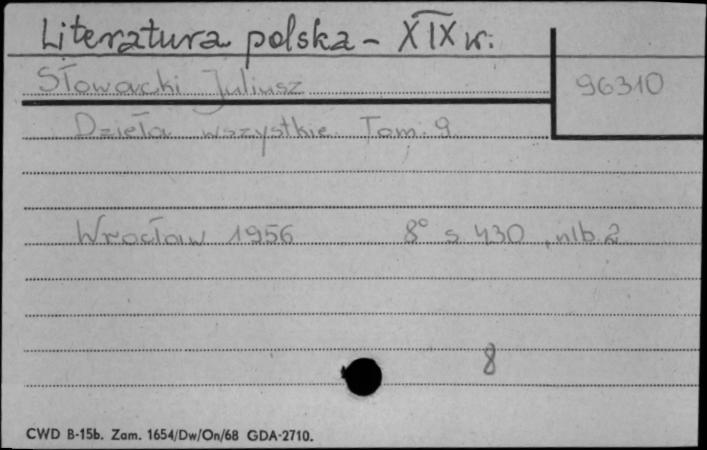 Literatura polska - XIX w.
Słowacki Juliusz 96310
Dzieła wszystkie. Tom. 9.
Wrocław 1956 8° s. 430, nlb. 2
8
CWD B-15b. Zam. 1654/Dw/On/68 GDA-2710.